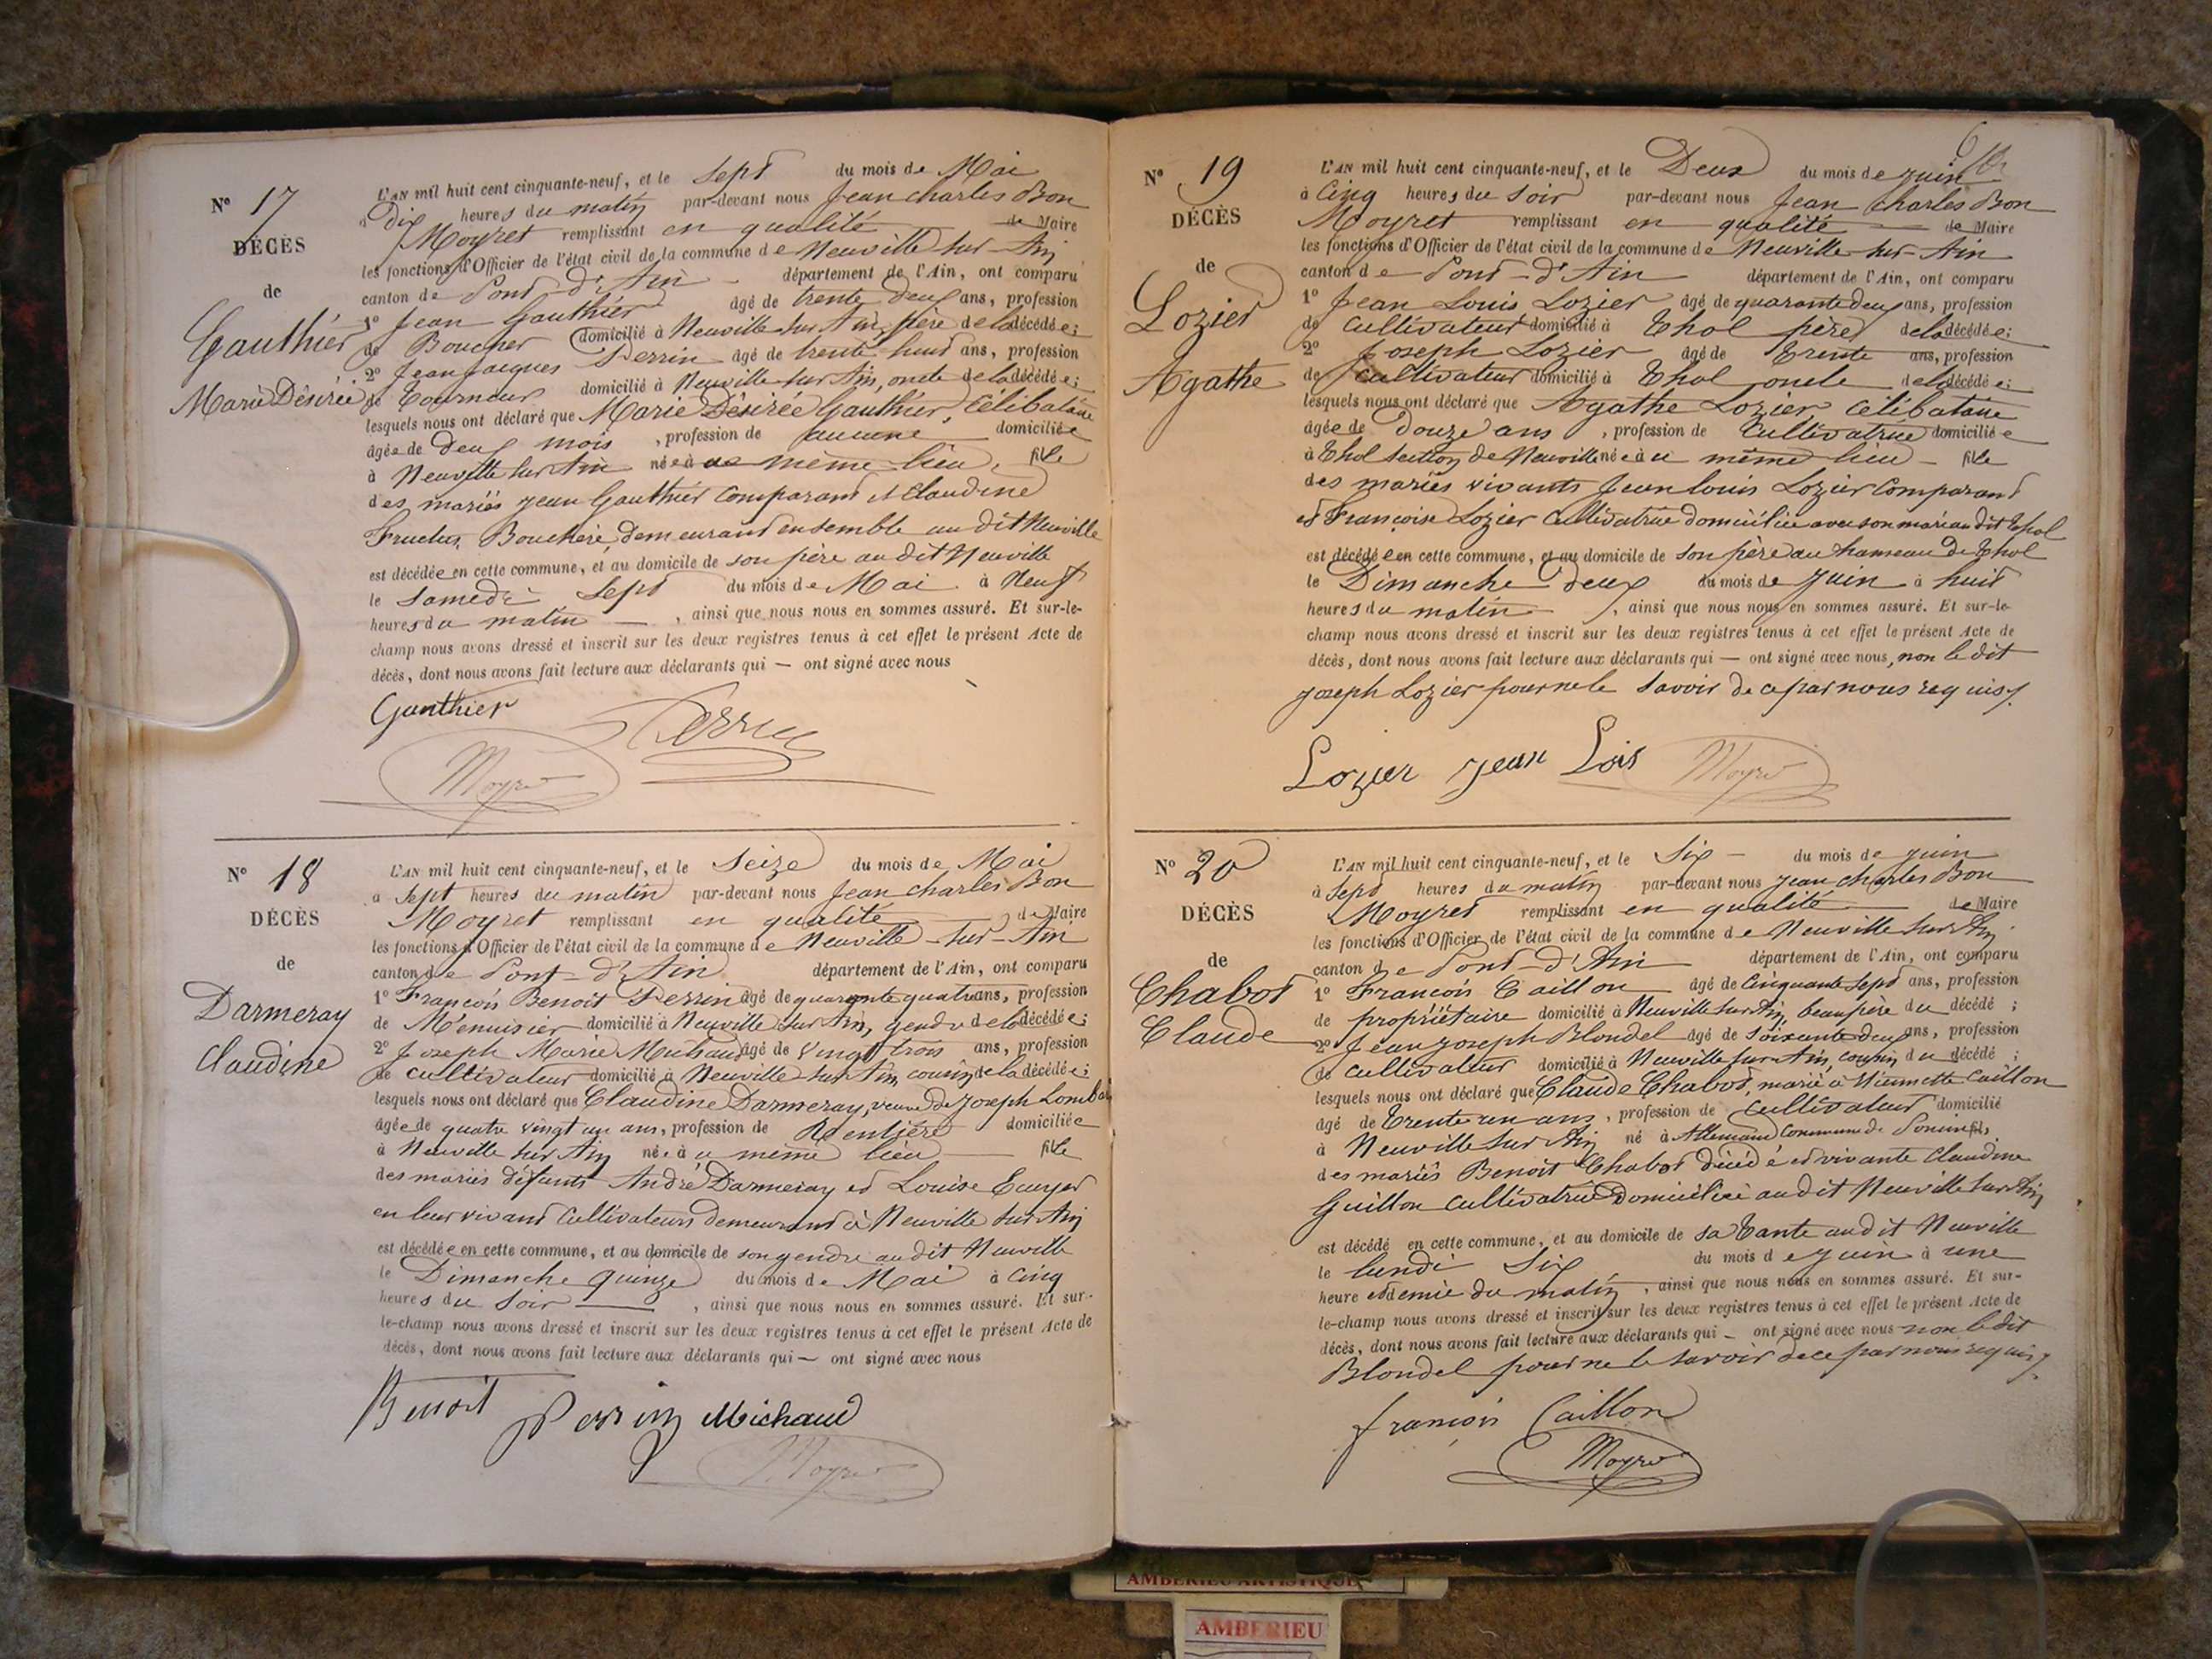 N° 17
DÉCÈS
de
Gauthier
Marie Désirée
L'AN mil huit cent cinquante-neuf, et le Sept du mois de Mai
à Dix heures du matin par-devant nous Jean Charles Bon
Moyret remplissant en qualité de Maire
les fonctions d'Officier de l'état civil de la commune de Neuville sur-Ain
canton de Pont-d'Ain département de l'Ain, ont comparu
1° Jean Gauthier âgé de trente deux ans, profession
de Boucher domicilié à Neuville sur Ain, père de la décédée;
2° Jean Jacques Perrin âgé de trente huit ans, profession
de Tourneur domicilié à Neuville sur Ain, oncle de la décédée;
lesquels nous ont déclaré que Marie Désirée Gauthier, Célibataire
âgée de deux mois, profession de aucune domiciliée
à Neuville sur Ain née à ce même lieu, fille
des mariés Jean Gauthier comparant et Claudine
Fructus, Bouchère, demeurant ensemble au dit Neuville
est décédée en cette commune, et au domicile de son père au dit Neuville
le Samedi Sept du mois de Mai à Neuf
heures du matin, ainsi que nous nous en sommes assuré. Et sur-le-
champ nous avons dressé et inscrit sur les deux registres tenus à cet effet le présent Acte de
décès, dont nous avons fait lecture aux déclarants qui — ont signé avec nous
Gauthier Perrin
Moyret
N° 18
DÉCÈS
de
Darmeray
Claudine
L'AN mil huit cent cinquante-neuf, et le Seize du mois de Mai
à Sept heures du matin par-devant nous Jean Charles Bon
Moyret remplissant en qualité de Maire
les fonctions d'Officier de l'état civil de la commune de Neuville-sur-Ain
canton de Pont-d'Ain département de l'Ain, ont comparu
1° François Benoit Perrin âgé de quarante quatre ans, profession
de Menuisier domicilié à Neuville sur Ain, gendre de la décédée;
2° Joseph Marie Michaud âgé de Vingt trois ans, profession
de cultivateur domicilié à Neuville sur Ain, cousin de la décédée;
lesquels nous ont déclaré que Claudine Darmeray, veuve de Joseph
âgée de quatre vingt un ans, profession de Rentière domiciliée
à Neuville sur Ain née à ce même lieu fille
des mariés défunts André Darmeray et Louise
en leur vivant Cultivateurs demeurant à Neuville sur Ain
est décédée en cette commune, et au domicile de son gendre au dit Neuville
le Dimanche quinze du mois de Mai à Cinq
heures du Soir, ainsi que nous nous en sommes assuré. Et sur-
le-champ nous avons dressé et inscrit sur les deux registres tenus à cet effet le présent Acte de
décès, dont nous avons fait lecture aux déclarants qui — ont signé avec nous
Benoit Perrin Michaud
Moyret
N° 19
DÉCÈS
de
Lozier
Agathe
L'AN mil huit cent cinquante-neuf, et le Deux du mois de juin
à Cinq heures du Soir par-devant nous Jean Charles Bon
Moyret remplissant en qualité de Maire
les fonctions d'Officier de l'état civil de la commune de Neuville-sur-Ain
canton de Pont-d'Ain département de l'Ain, ont comparu
1° Jean Louis Lozier âgé de quarante deux ans, profession
de Cultivateur domicilié à Thol père de la décédée;
2° Joseph Lozier âgé de Trente ans, profession
de Cultivateur domicilié à Thol oncle de la décédée;
lesquels nous ont déclaré que Agathe Lozier Célibataire
âgée de Douze ans, profession de Cultivatrice domiciliée
à Thol section de Neuville née à ce même lieu — fille
des mariés vivants Jean Louis Lozier Comparant
et Françoise Lozier Cultivatrice domiciliée avec son mari au dit Thol
est décédée en cette commune, et au domicile de son père au hameau de Thol
le Dimanche deux du mois de Juin à huit
heures du matin, ainsi que nous nous en sommes assuré. Et sur-le-
champ nous avons dressé et inscrit sur les deux registres tenus à cet effet le présent Acte de
décès, dont nous avons fait lecture aux déclarants qui — ont signé avec nous, non le dit
Joseph Lozier pour ne le savoir de ce par nous requis.
Lozier jean Lois Moyret
N° 20
DÉCÈS
de
Chabot
Claude
L'AN mil huit cent cinquante-neuf, et le Six — du mois de juin
à Sept heures du matin par-devant nous Jean Charles Bon
Moyret remplissant en qualité de Maire
les fonctions d'Officier de l'état civil de la commune de Neuville sur Ain
canton de Pont-d'Ain département de l'Ain, ont comparu
1° François Caillon âgé de Cinquante Sept ans, profession
de propriétaire domicilié à Neuville sur Ain, beau père du décédé;
2° Jean Joseph Blondel âgé de Soixante deux ans, profession
de Cultivateur domicilié à Neuville sur Ain, cousin du décédé;
lesquels nous ont déclaré que Claude Chabot, marié à Caillon
âgé de Trente un ans, profession de Cultivateur domicilié
à Neuville sur Ain né à Allemand Commune de fils
des mariés Benoit Chabot décédé et vivante Claudine
Guillon cultivatrice domiciliée au dit Neuville sur Ain
est décédé en cette commune, et au domicile de sa Tante au dit Neuville
le lundi Six du mois de juin à une
heure et demie du matin, ainsi que nous nous en sommes assuré. Et sur-
le-champ nous avons dressé et inscrit sur les deux registres tenus à cet effet le présent Acte de
décès, dont nous avons fait lecture aux déclarants qui — ont signé avec nous non le dit
Blondel pour ne le savoir de ce par nous requis.
françois Caillon
Moyret
AMBERIEU ARTISTIQUE
AMBERIEU